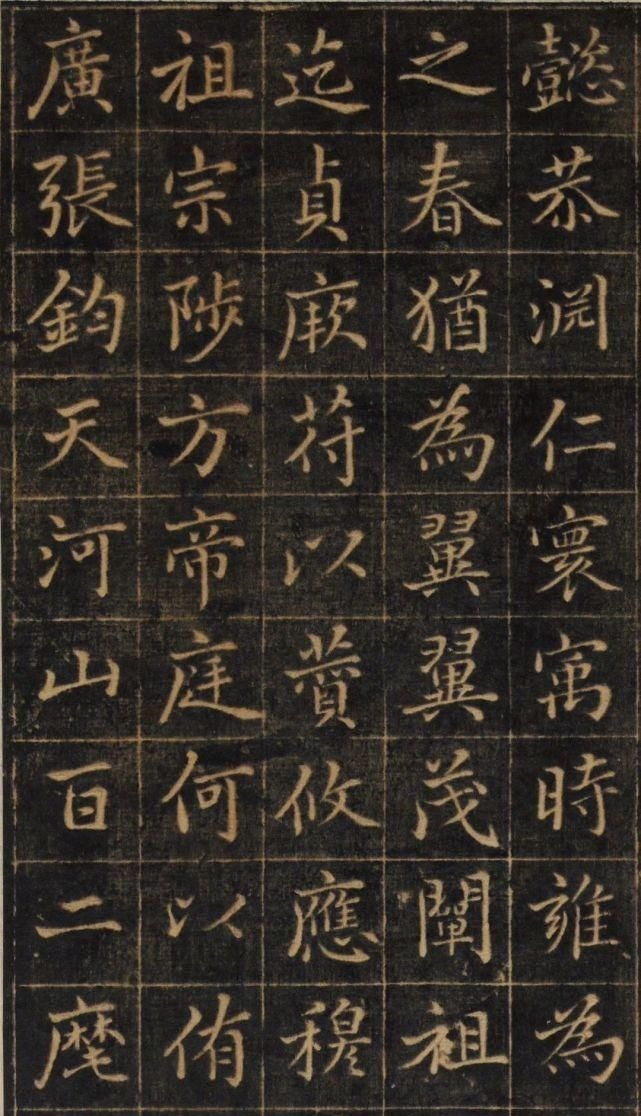 懿恭淵仁寰寓時雍為
之春猶為翼翼茂闡祖
迄貞厥苻以賁攸應穆
祖宗陟方帝庭何以侑
廣張鈞天河山百二麾